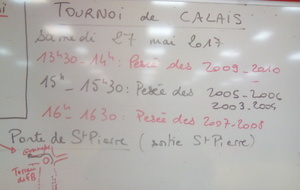 TOURNOI de CALAIS
Samedi 27 mai 2017
13h30 - 14h : Pesée des 2009-2010
15h - 15h30 : Pesée des 2005-2006
2003-2004
16h - 1630 : Pesée des 2007-2008
Porte de St Pierre ( sortie St Pierre )